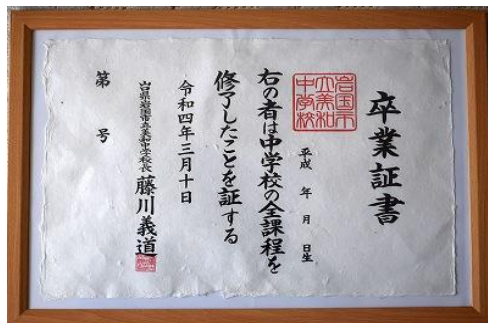 卒業証書
岩国市
立美和
中学校
平成 年 月 日生
右の者は中学校の全課程を
修了したことを証する
令和四年三月十日
山口県岩国市立美和中学校長 藤川義道
第 号